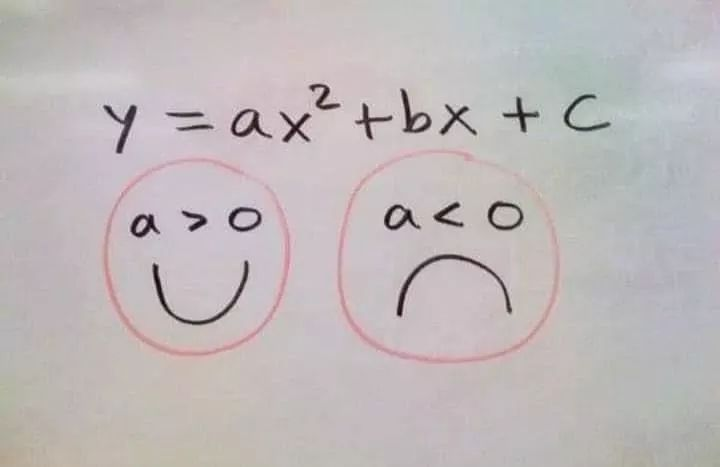 y = ax² + bx + c
a > 0 a < 0